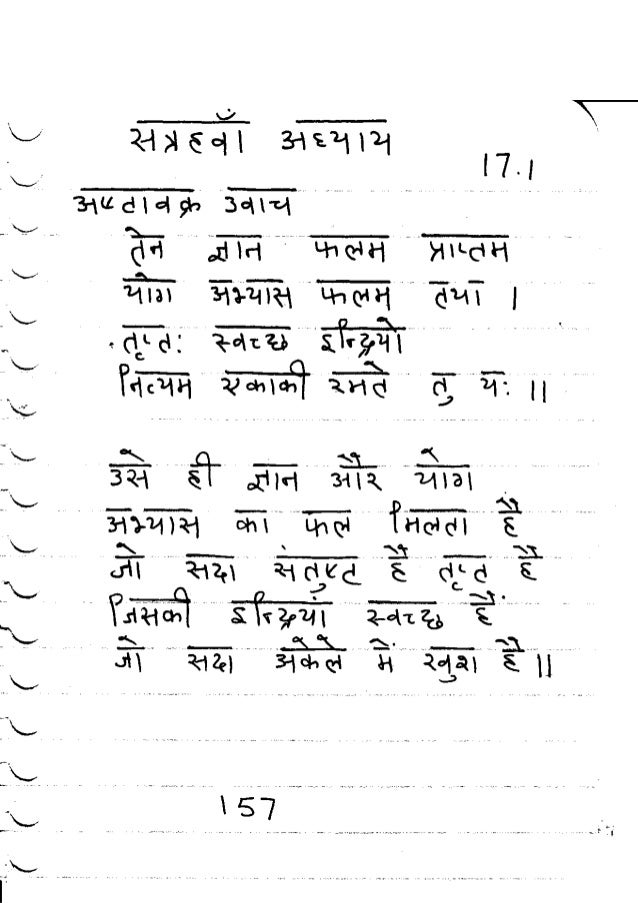 सत्रहवाँ अध्याय
17.1
अष्टावक्र उवाच
तेन ज्ञान फलम प्राप्तम
योग अभ्यास फलम तथा ।
तृप्तः स्वच्छ इन्द्रियो
नित्यम एकाकी रमते तु यः ॥
उसे ही ज्ञान और योग
अभ्यास का फल मिलता है
जो सदा संतुष्ट है तृप्त है
जिसकी इन्द्रियां स्वच्छ हैं
जो सदा अकेले में खुश है ॥
157